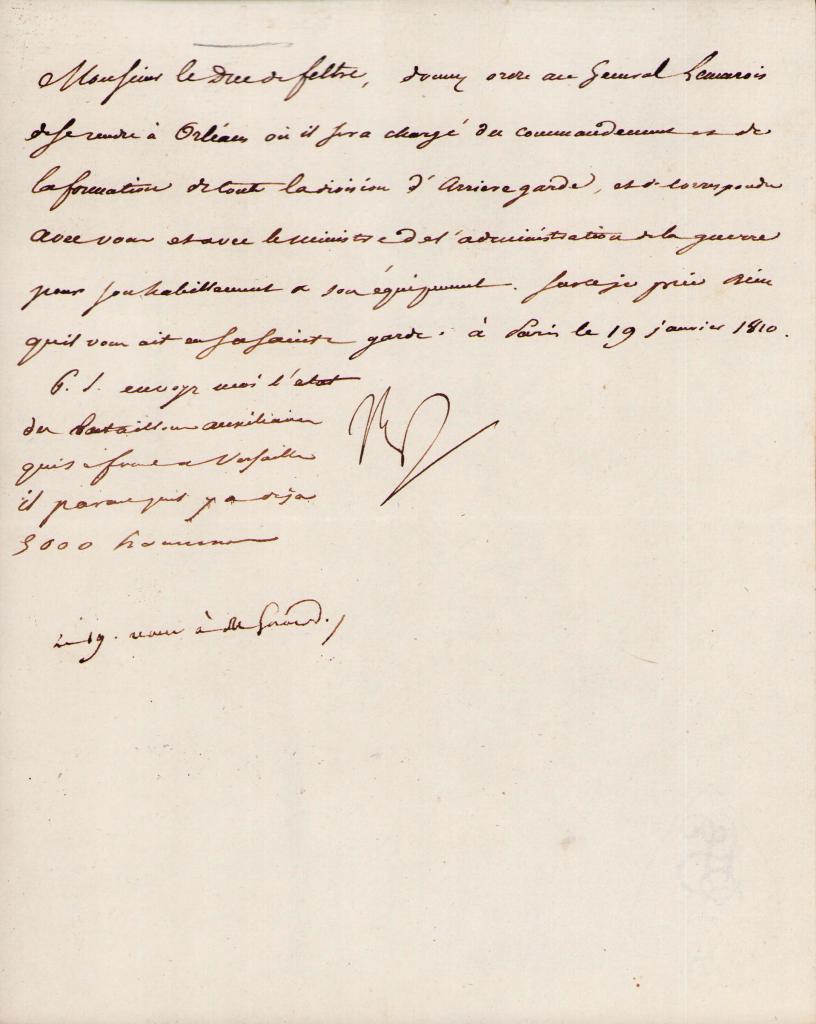 Monsieur le Duc de feltre, donnez ordre au General Lemarois
de se rendre à Orléans où il sera chargé du commandement et de
la formation de toute la division d'Arriere garde, et de correspondre
avec vous et avec le ministre de l'administration de la guerre
pour son habillement & son équipement. Sur ce je prie Dieu
qu'il vous ait en sa sainte garde. à Paris le 19 janvier 1810.
P. S. envoyez moi l'etat
du bataillon auxiliaire
qui se forme a Versailles
il parait qu'il y a deja
3000 hommes
Np
Le 19. à M Gérard.